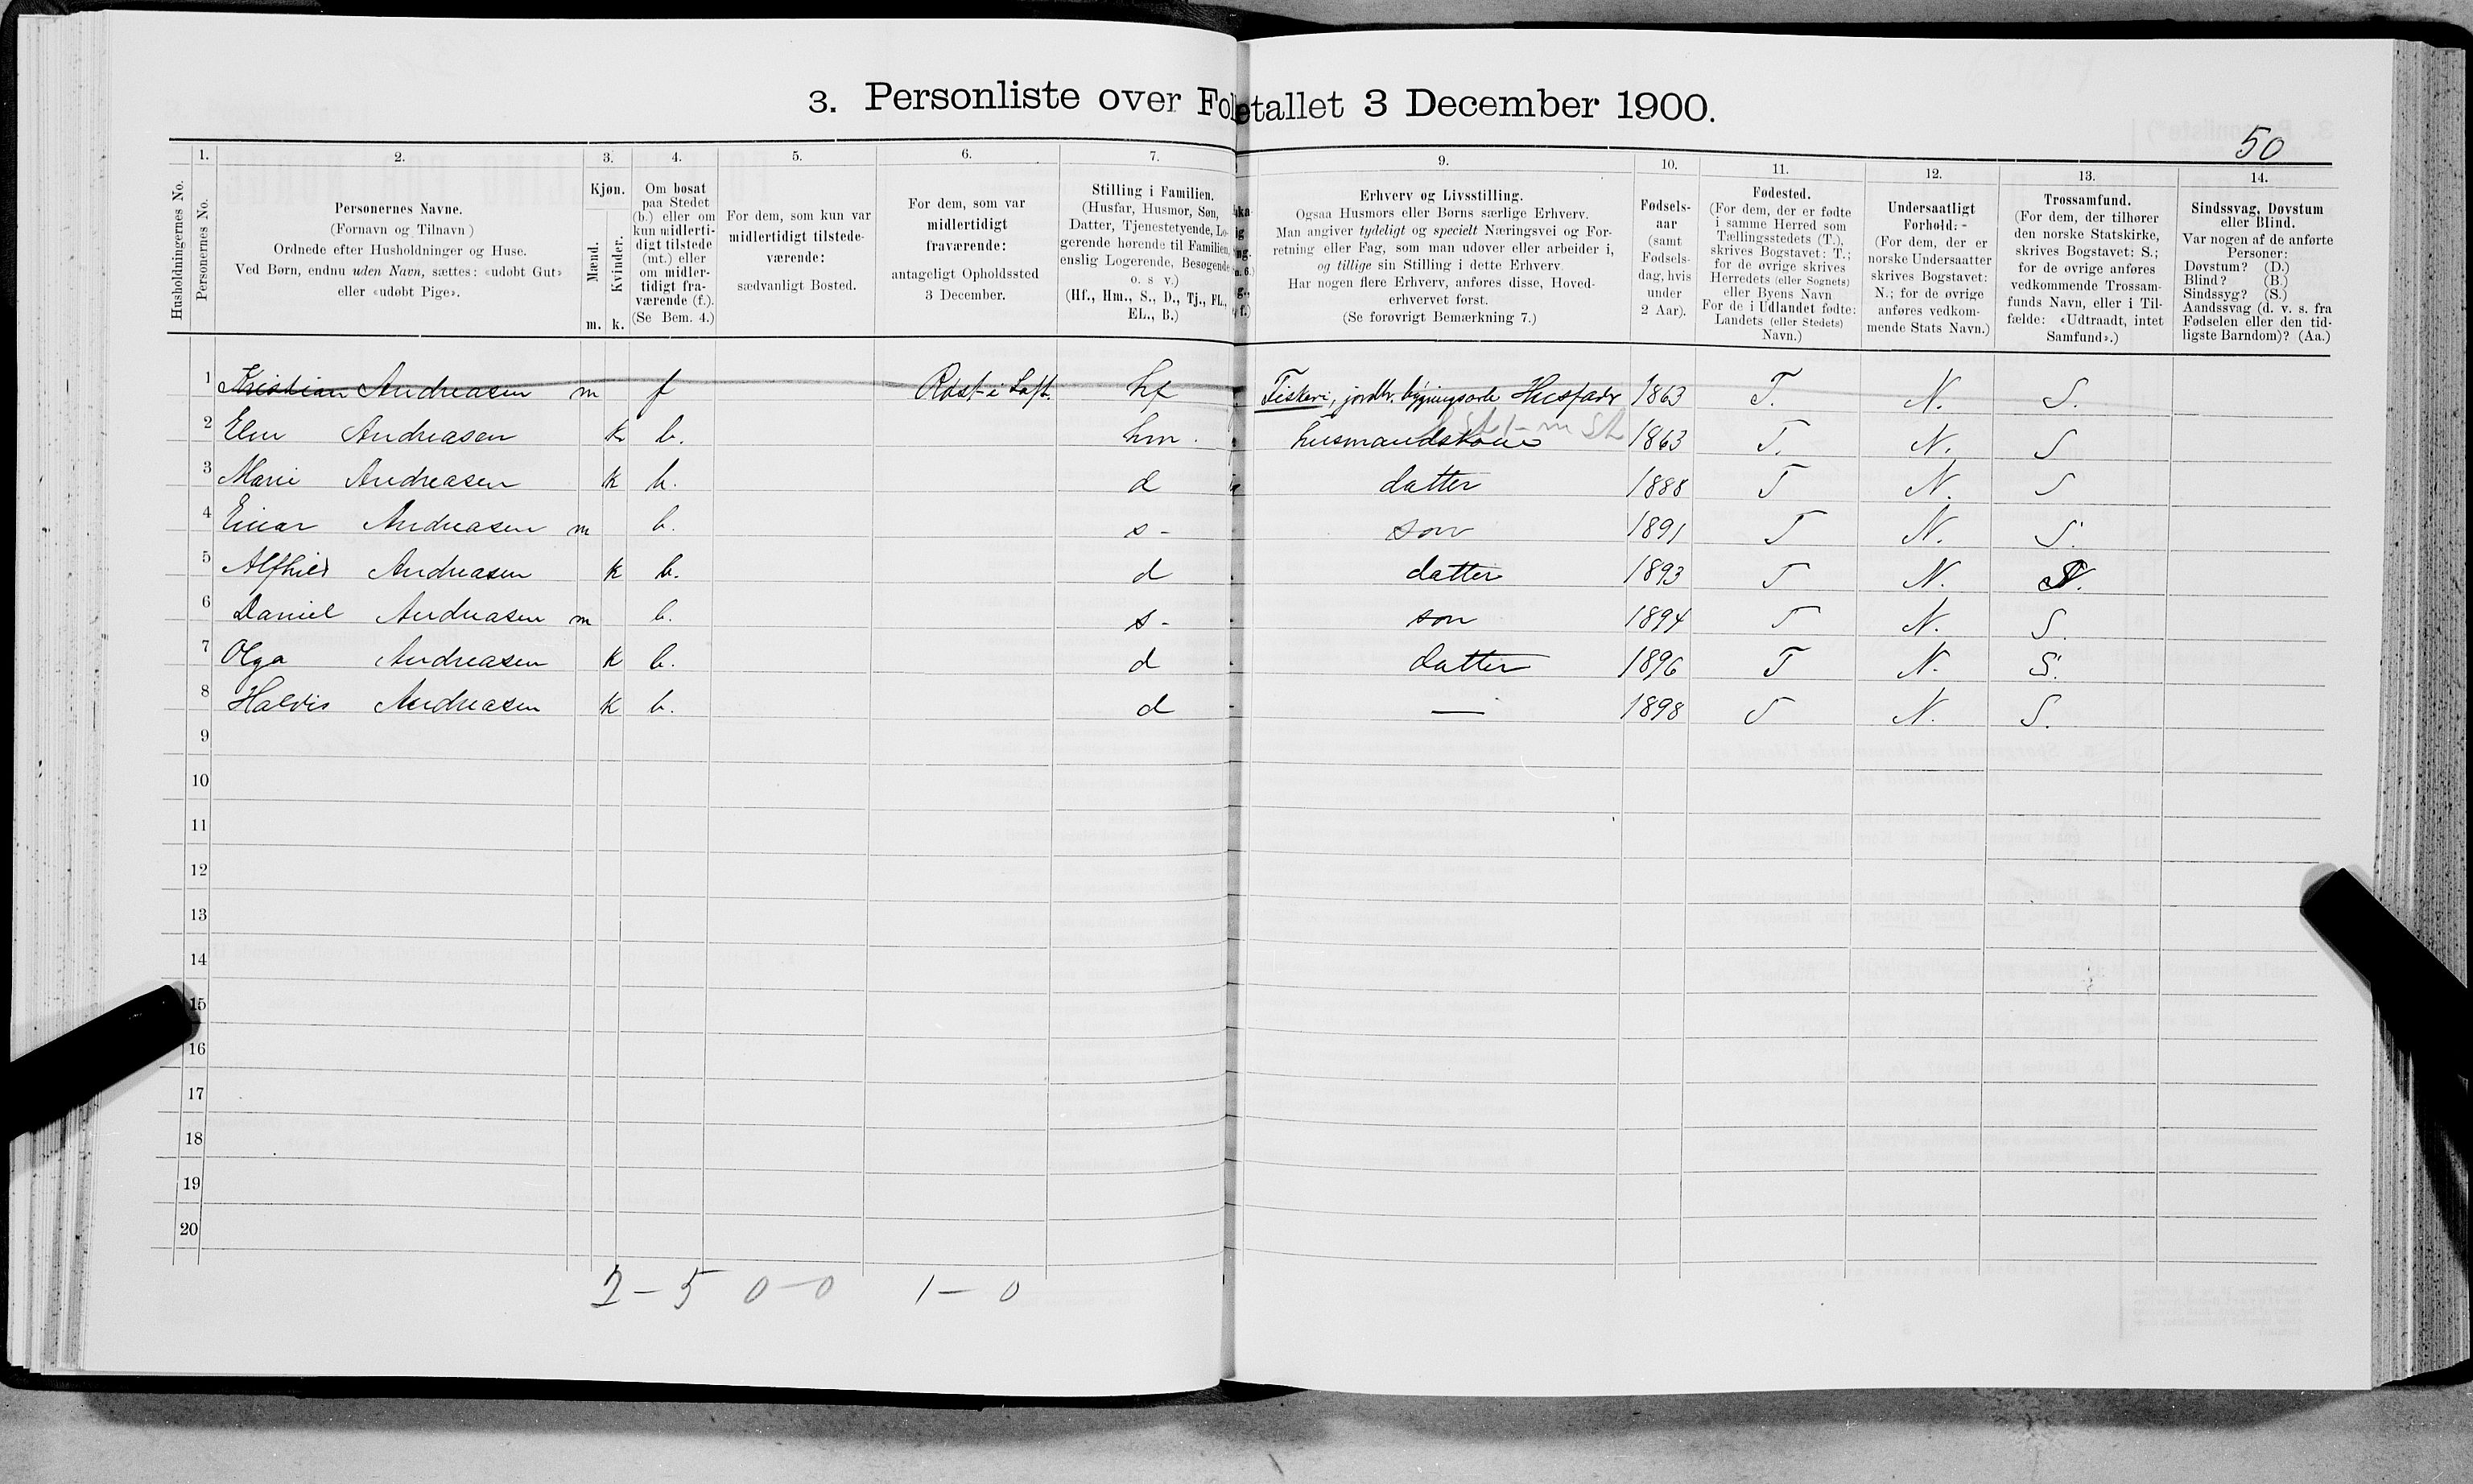 3. Personliste over Folketallet 3 December 1900.
50
1. 2. 3. 4. 5. 6. 7. 9. 10. 11. 12. 13. 14.
Husholdningernes No.
Personernes No.
Personernes Navne.
(Fornavn og Tilnavn)
Ordnede efter Husholdninger og Huse.
Ved Børn, endnu uden Navn, sættes: «udøbt Gut»
eller «udøbt Pige».
Kjøn.
Mænd.
Kvinder.
m. k.
Om bosat
paa Stedet
(b.) eller om
kun midlerti-
digt tilstede
(mt.) eller
om midler-
tidigt fra-
værende (f.).
(Se Bem. 4.)
For dem, som kun var
midlertidigt tilstede-
værende:
sædvanligt Bosted.
For dem, som var
midlertidigt
fraværende:
antageligt Opholdssted
3 December.
Stilling i Familien.
(Husfar, Husmor, Søn,
Datter, Tjenestetyende, Lo-
gerende hørende til Familien,
enslig Logerende, Besøgende
o. s v.)
(Hf., Hm., S., D., Tj., FL.,
EL., B.)
Erhverv og Livsstilling.
Ogsaa Husmors eller Børns særlige Erhverv.
Man angiver tydeligt og specielt Næringsvei og For-
retning eller Fag, som man udøver eller arbeider i,
og tillige sin Stilling i dette Erhverv.
Har nogen flere Erhverv, anføres disse, Hoved-
erhvervet først.
(Se forøvrigt Bemærkning 7.)
Fødsels-
aar
(samt
Fødsels-
dag, hvis
under
2 Aar).
Fødested.
(For dem, der er fødte
i samme Herred som
Tællingsstedets (T.),
skrives Bogstavet: T.;
for de øvrige skrives
Herredets (eller Sognets)
eller Byens Navn
For de i Udlandet fødte:
Landets (eller Stedets)
Navn.)
Undersaatligt
Forhold: -
(For dem, der er
norske Undersaatter
skrives Bogstavet:
N.; for de øvrige
anføres vedkom-
mende Stats Navn.)
Trossamfund.
(For dem, der tilhører
den norske Statskirke,
skrives Bogstavet: S.;
for de øvrige anføres
vedkommende Trossam-
funds Navn, eller i Til-
fælde: «Udtraadt, intet
Samfund».)
Sindssvag, Døvstum
eller Blind.
Var nogen af de anførte
Personer:
Døvstum? (D.)
Blind? (B.)
Sindssyg? (S.)
Aandssvag (d. v. s. fra
Fødselen eller den tid-
ligste Barndom)? (Aa.)
1 Kristian Andreasen m f Røst i Loft. hf Fiskeri, jordbr. bygningsarb Husfader 1863 T. N. S.
2 Elen Andreasen k b. hm. husmandskone 1863 T. N. S
3 Marie Andreasen k b. d datter 1888 T N. S
4 Einar Andreasen m b. s- son 1891 T N. S.
5 Alfhild Andreasen k b. d datter 1893 T N.
6 Daniel Andreasen m b. s- son 1894 T N. S.
7 Olga Andreasen k b. d datter 1896 T N. S.
8 Haldis Andreasen k b. d — 1898 T N. S.
9
10
11
12
13
14
15
16
17
18
19
20
2-5 0-0 1-0